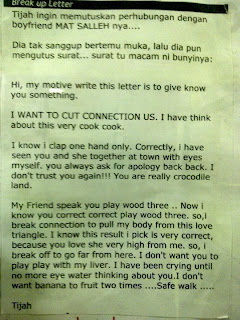 Break up Letter
Tijah ingin memutuskan perhubungan dengan
boyfriend MAT SALLEH nya....
Dia tak sanggup bertemu muka, lalu dia pun
mengutus surat... surat tu macam ni bunyinya:
Hi, my motive write this letter is to give know
you something.
I WANT TO CUT CONNECTION US. I have think
about this very cook cook.
I know i clap one hand only. Correctly, i have
seen you and she together at town with eyes
myself. you always ask for apology back back. I
don't trust you again!!! You are really crocodile
land.
My Friend speak you play wood three .. Now i
know you correct correct play wood three. so,i
break connection to pull my body from this love
triangle. I know this result i pick is very correct,
because you love she very high from me. so, i
break off to go far from here. I don't want you to
play play with my liver. I have been crying until
no more eye water thinking about you.I don't
want banana to fruit two times ....Safe walk .....
Tijah